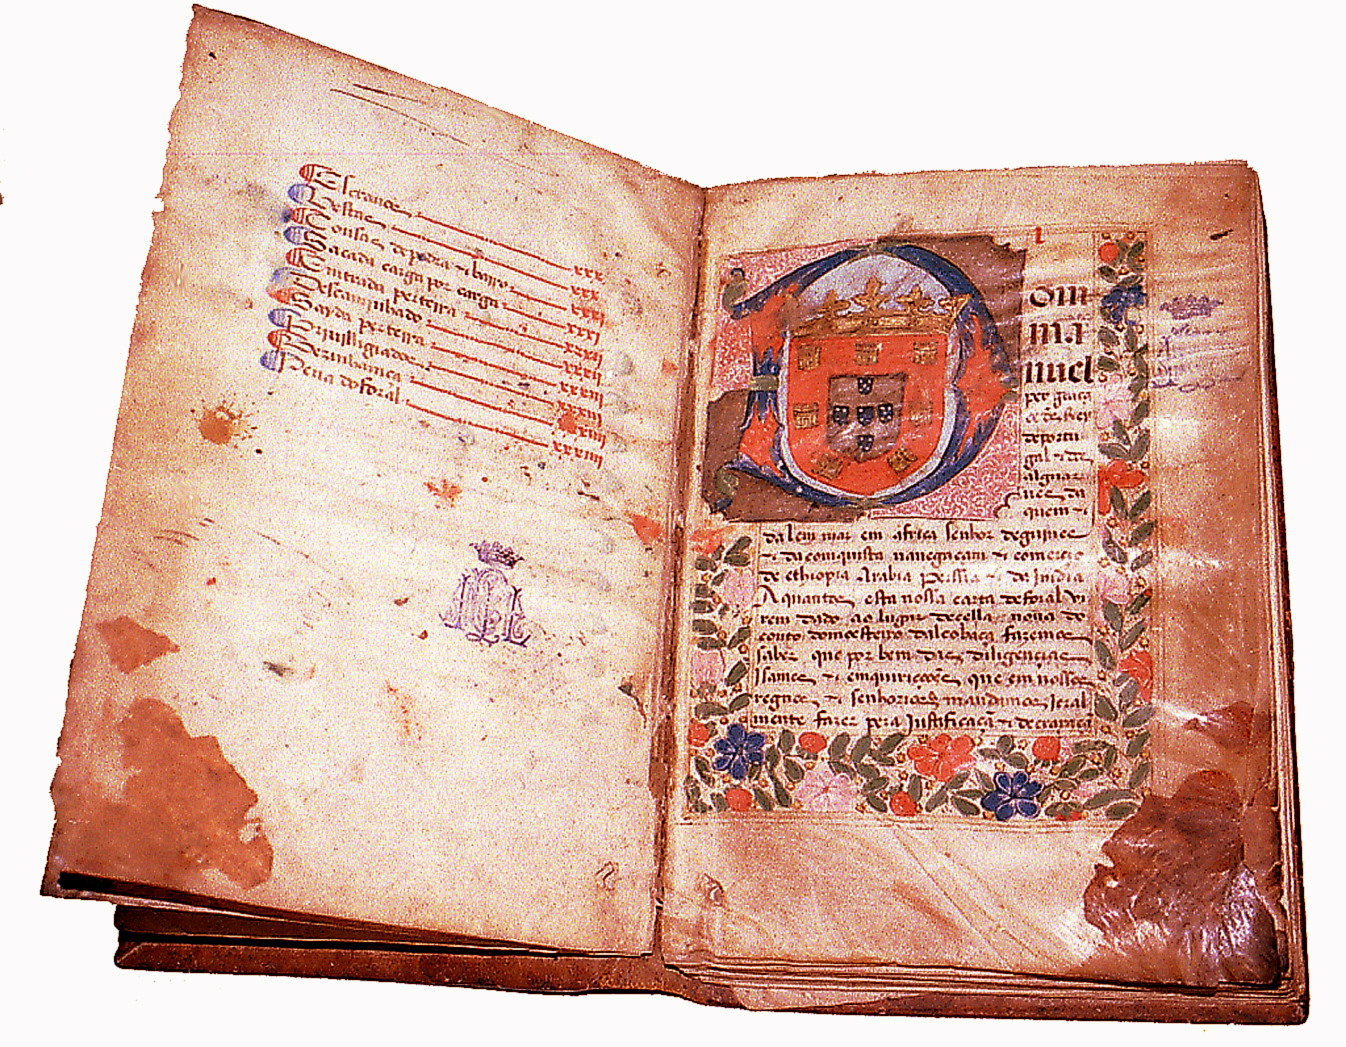 xxx
xxx
ousas de pedra & barro xxxi
acada carga por carga xxxi
ntrada per terra xxxii
escaminhado xxxii
ayda per terra xxxiii
riuilligiados
pena do foral xxxiiii
I
om
ma
nuel
per graca
de portu
gal & dos
algar
ues da
quem &
dalem mar em africa senhor de guinee
& da comquista nauegacam & comercio
de ethiopia Arabia perssia & da India
A quantos esta nossa carta de foral vi
rem dado ao lugar de cella noua do
couto do moesteiro dalcobaca fazemos
saber que por bem das diligencias
Isames & emquiricoões que em nossos
regnos & senhorios mandamos Ieral
mente fazer pera Justificaca & decraraca